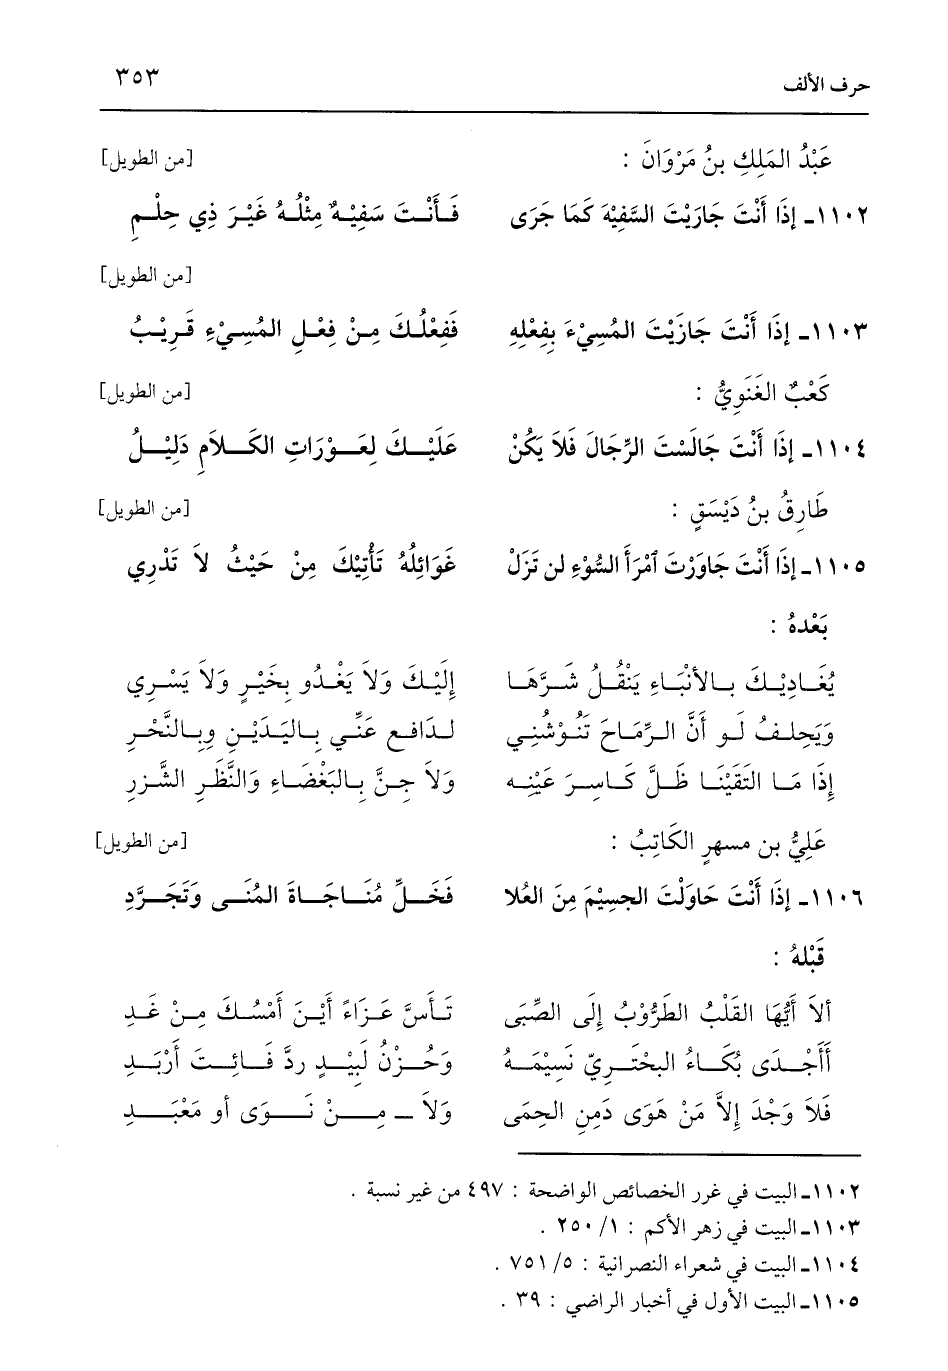 حرف الألف ٣٥٣
عَبْدُ المَلِكِ بنُ مَرْوَانَ : [من الطويل]
١١٠٢ـ إذَا أَنْتَ جَارَيْتَ السَّفِيْهَ كَمَا جَرَى فَـأَنْـتَ سَفِيْـهٌ مِثْلُـهُ غَيْـرَ ذِي حِلْـمِ
[من الطويل]
١١٠٣ـ إذَا أَنْتَ جَازَيْتَ المُسِيْءَ بِفِعْلِهِ فَفِعْلُـكَ مِـنْ فِعْـلِ المُسِـيْءِ قَـرِيْـبُ
كَعْبٌ الغَنَوِيُّ : [من الطويل]
١١٠٤ـ إذَا أَنْتَ جَالَسْتَ الرِّجَالَ فَلاَ يَكُنْ عَلَيْـكَ لِعَـوْرَاتِ الكَـلاَمِ دَلِيْـلُ
طَارِقُ بنُ دَيْسَقٍ : [من الطويل]
١١٠٥ـ إذَا أَنْتَ جَاوَرْتَ ٱمْرَأَ السُّوْءِ لن تَزَلْ غَوَائِلُهُ تَأْتِيْكَ مِنْ حَيْثُ لاَ تَدْرِي
بَعْدهُ :
يُغَـادِيْـكَ بـالأنْبَـاءِ يَنْقُـلُ شَـرَّهَـا إلَيْـكَ وَلاَ يَغْدُو بِخَيْـرٍ وَلاَ يَسْـرِي
وَيَحلِـفُ لَـو أنَّ الـرِّمَـاحَ تَنُـوْشُنِـي لَـدَافـعِ عَنِّـي بِـاليَـدَيْـنِ وبِـالنَّحْـرِ
إِذَا مَـا التَقَيْنَـا ظَلَّ كَـاسِـرَ عَيْنِـه وَلاَ جِـنَّ بِـالبَغْضَـاءِ وَالنَّظَـرِ الشَّزرِ
عَلِيُّ بن مسهرٍ الكَاتِبُ : [من الطويل]
١١٠٦ـ إذَا أَنْتَ حَاوَلْتَ الجسِيْمَ مِنَ العُلا فَخَـلِّ مُنَـاجَـاةَ المُنَـى وَتَجَـرَّدِ
قَبْلهُ :
ألاَ أيُّهَا القَلْبُ الطَرُوْبُ إلَى الصِّبَى تَـأَسَّ عَـزَاءً أيْـنَ أَمْسُـكَ مِـنْ غَـدِ
أَأَجْـدَى بُكَـاءُ البحْتَـرِيّ نَسِيْمَـهُ وَحُـزْنُ لَبِيْـدٍ ردَّ فَـائِـتَ أَرْبَـدِ
فَلاَ وَجْدَ إلاَّ مَنْ هَوَى دَمنِ الحِمَى وَلاَ ـ مِـنْ نَـوَى أو مَعْبَـدِ
١١٠٢ـ البيت في غرر الخصائص الواضحة : ٤٩٧ من غير نسبة .
١١٠٣ـ البيت في زهر الأكم : ١/ ٢٥٠ .
١١٠٤ـ البيت في شعراء النصرانية : ٥/ ٧٥١ .
١١٠٥ـ البيت الأول في أخبار الراضي : ٣٩ .